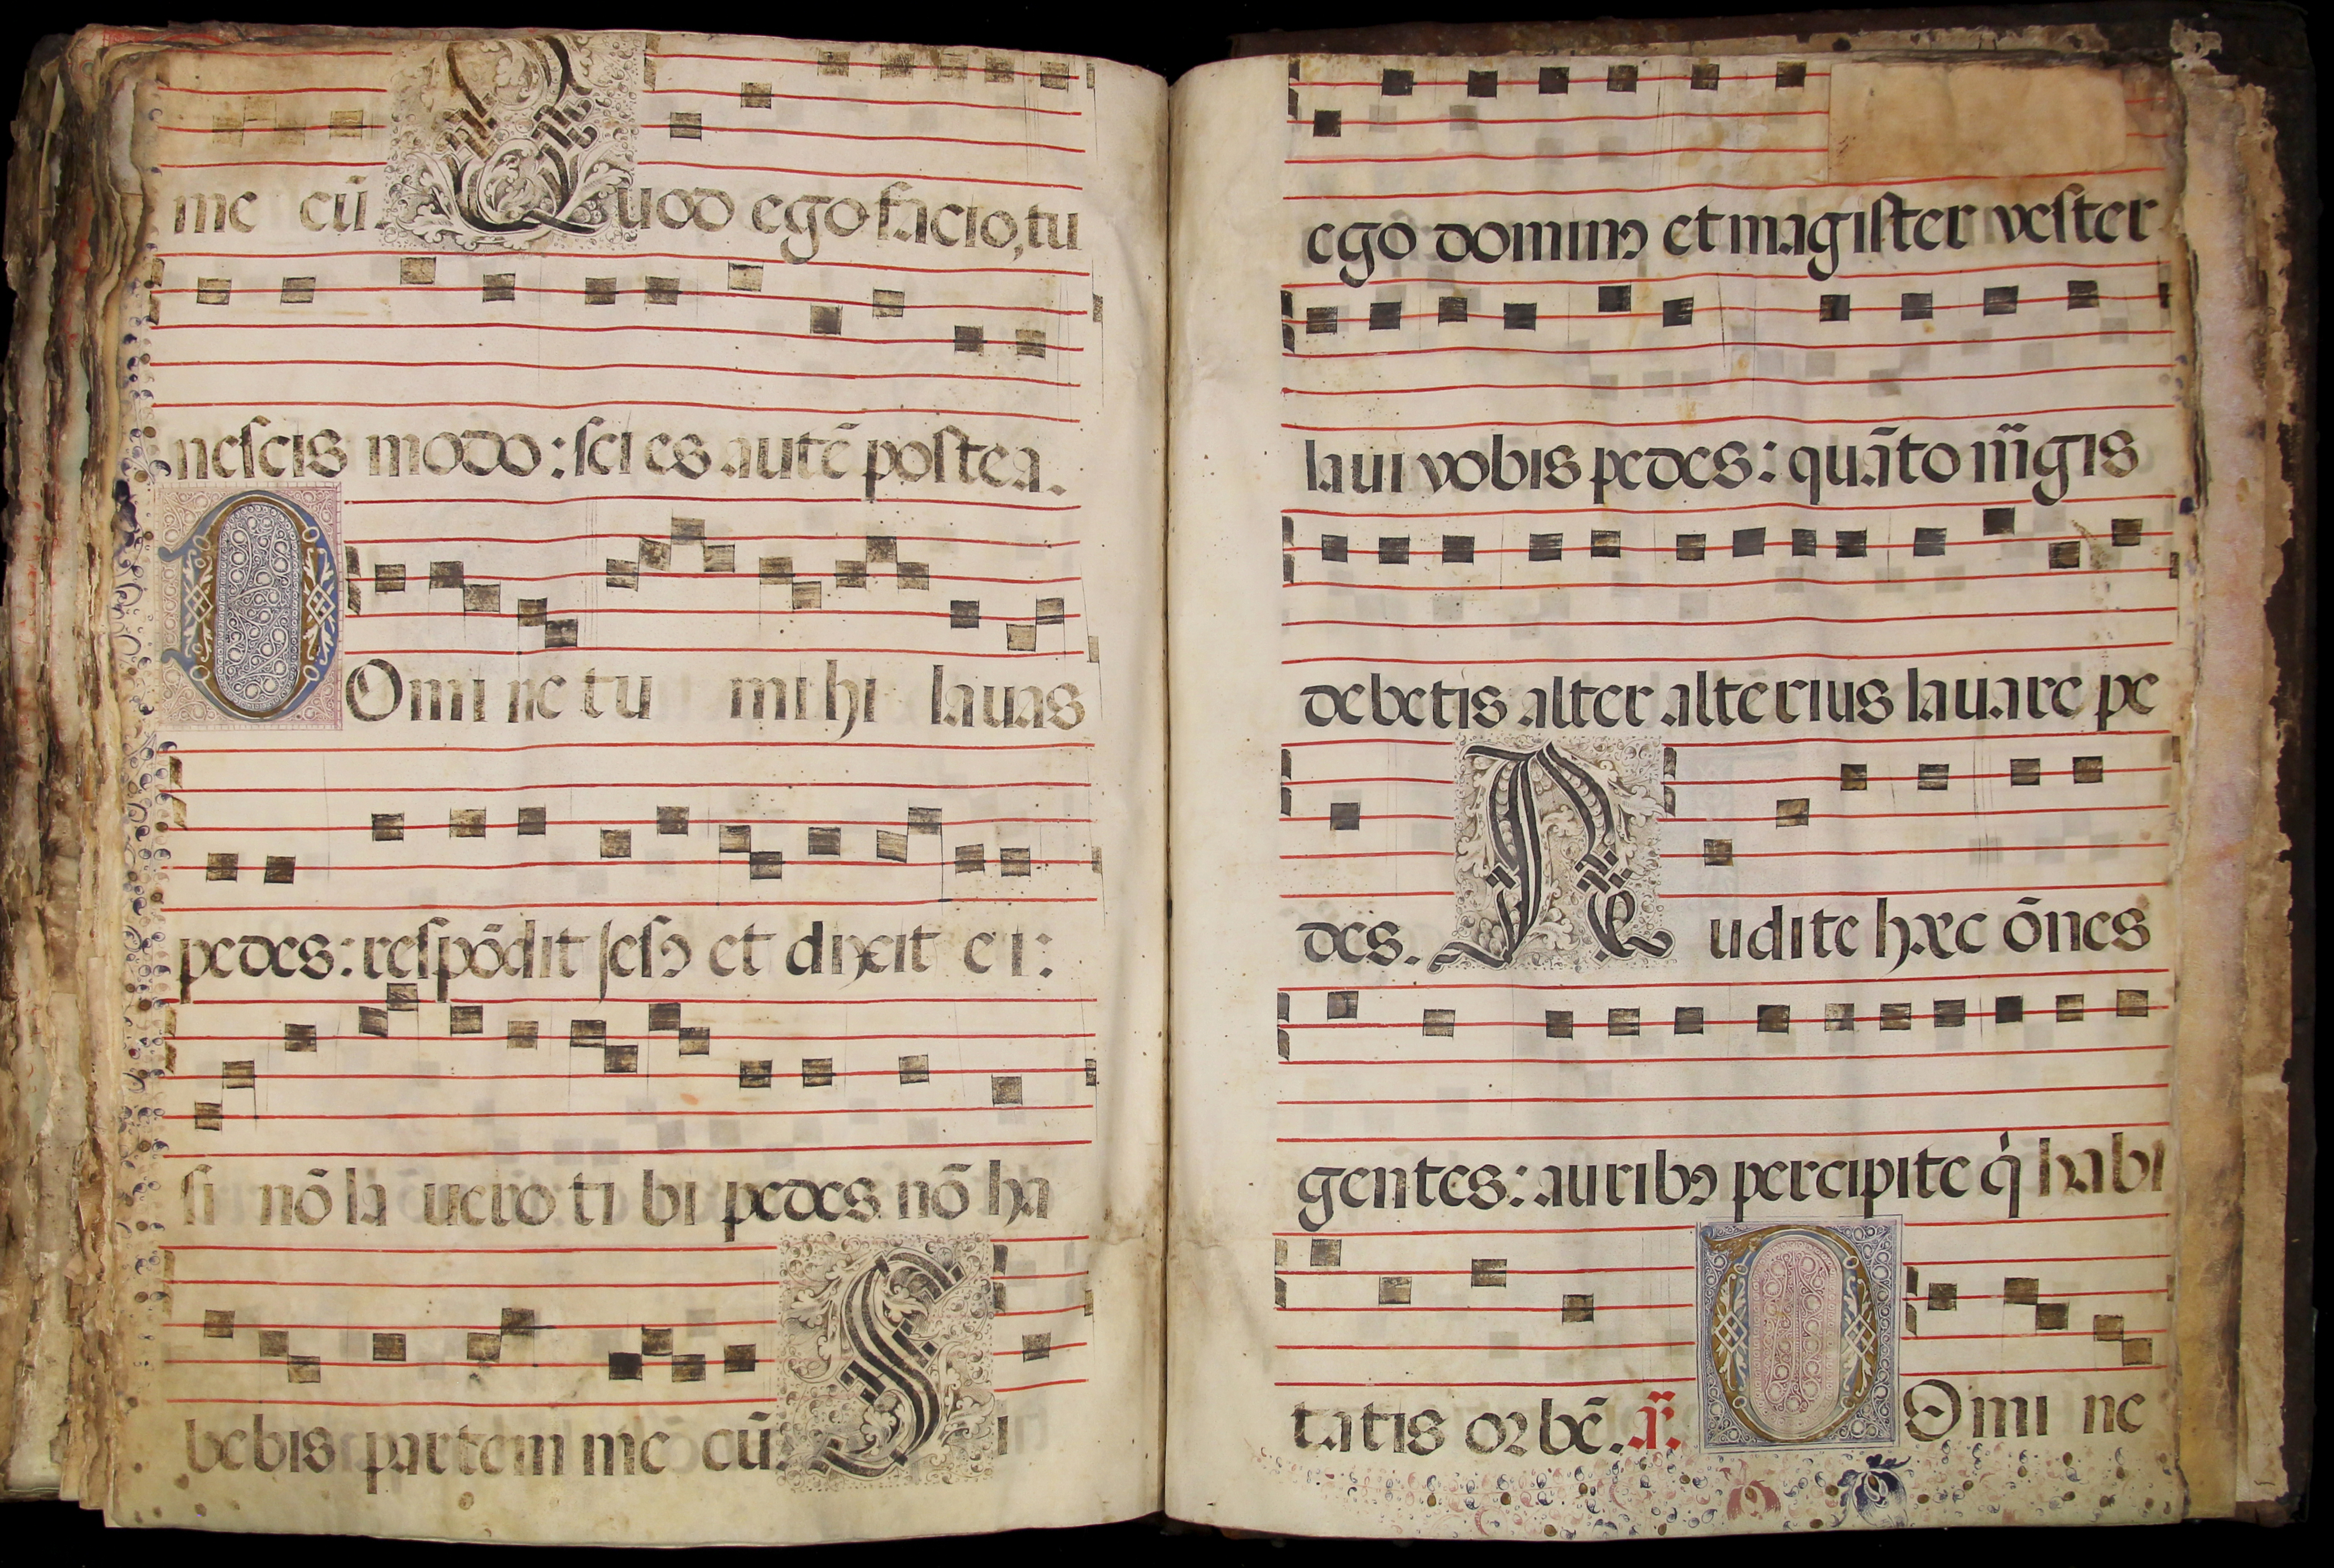 me cũ. Quod ego facio, tu
nescis modo: sci es autẽ postea.
DOmi ne tu mi hi lauas
pedes: respõdit Iesꝰ et dixit e i:
si nõ la uero ti bi pedes nõ ha
bebis partem me cũ. Si
ego dominꝰ et magister vester
laui vobis pedes: quãto m̃gis
debetis alter alterius lauare pe
des. Audite hæc õnes
gentes: auribꝰ percipite q̇ habi
tatis orbẽ. DOmi ne